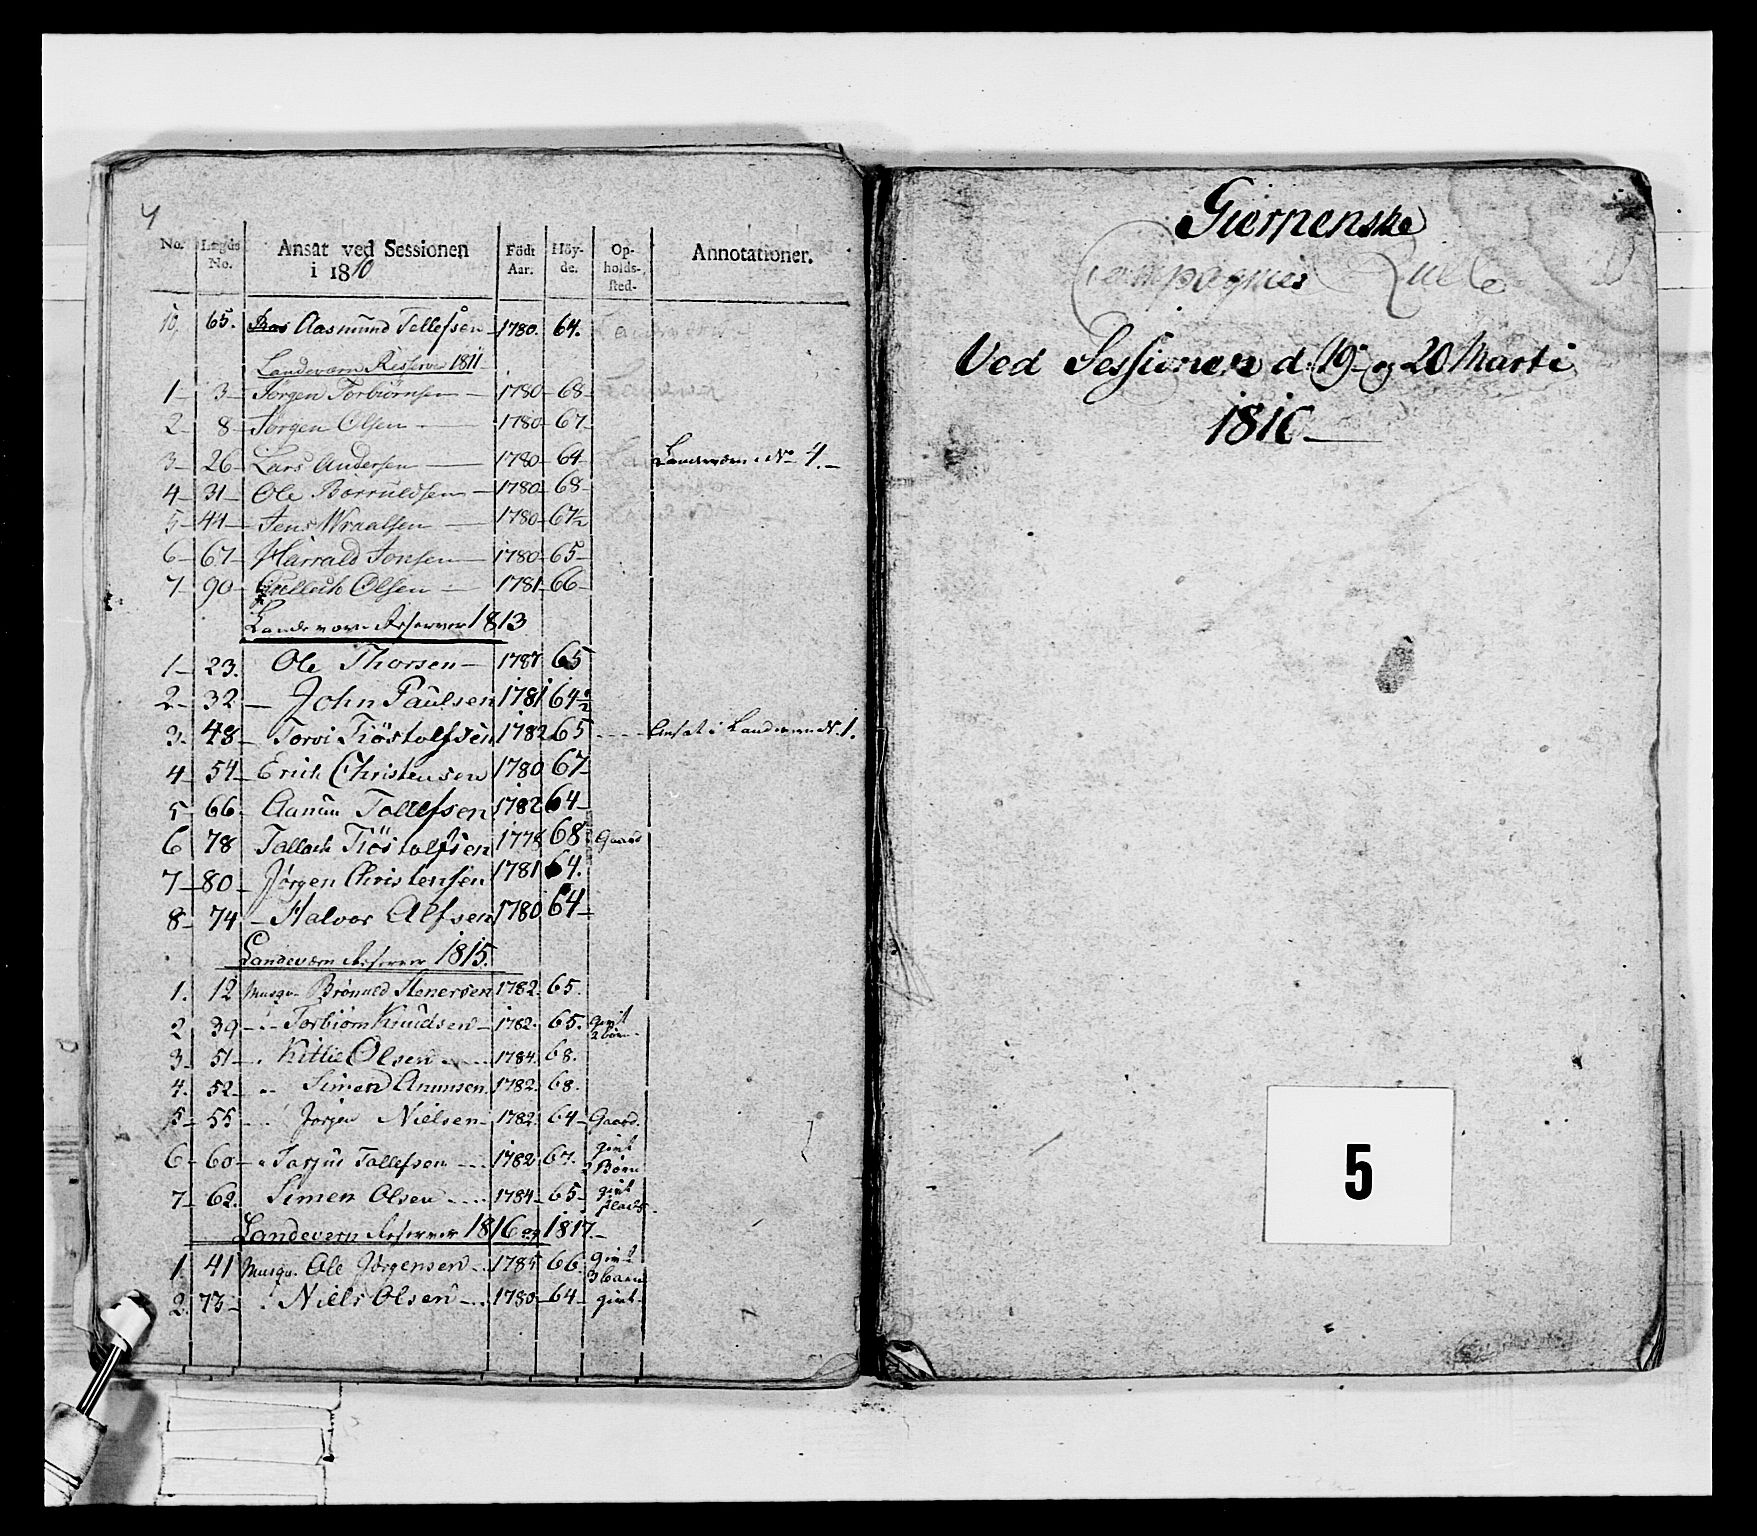 4
No. | Lægds No. | Ansat ved Sessionen i 1810 | Födt Aar. | Höyde. | Opholdssted. | Annotationer.
10, 65. Aasmund Tellefsen 1780. 64.
Landeværn Reserver 1811
1 3 Jørgen Torbiørnsen 1780 68
2 8 Jørgen Olsen 1780 67
3 26 Lars Andersen 1780 64 Landeværn No 4.
4 31 Ole Borruldsen 1780 68
5 44 Jens Wraalsen 1780 67½
6 67 Harrald Jonsen 1780 65
7 90 Olsen 1781 66
Landeværn Reserver 1813
1 23. Ole Thorsen 1787 65
2 32 John Paulsen 1781 64½
3 48 Torvi Tiöstolfsen 1782 65 Ansat i Landeværn No. 1.
4 54 Erich Christensen 1780 67
5 66 Aanun Tollefsen 1782 64
6 78 Tallack Tiöstolfsen 68 Gaard
7 80 Jørgen Christensen 1781 64.
8 74 Halvor Alfsen 1780 64
Landeværn Reserver 1815.
1. 12 Musqv. Stenersen 1782. 65.
2 39 Torbiørn Knudsen 1782. 65. givt 2 børn
3 51 Kittil Olsen 1784. 68.
4. 52. Simen Anunsen 1782. 68.
5 55 Jørgen Nielsen 1782. 64 Gaard.
6 60 Tarjus Tallefsen 1782 67. givt 2 Børn
7 62. Simen Olsen 1784 65 givt plads
Landeværn Reserver 1816 og 1817.
1. 41 Musqv. Ole Jørgensen 1785 66 givt 3 barn
2. 73 Niels Olsen 1780 64 givt
Gierpenske
Compagnies Rulle
Ved Sessionen d. 19 og 20 Marti
1816
5